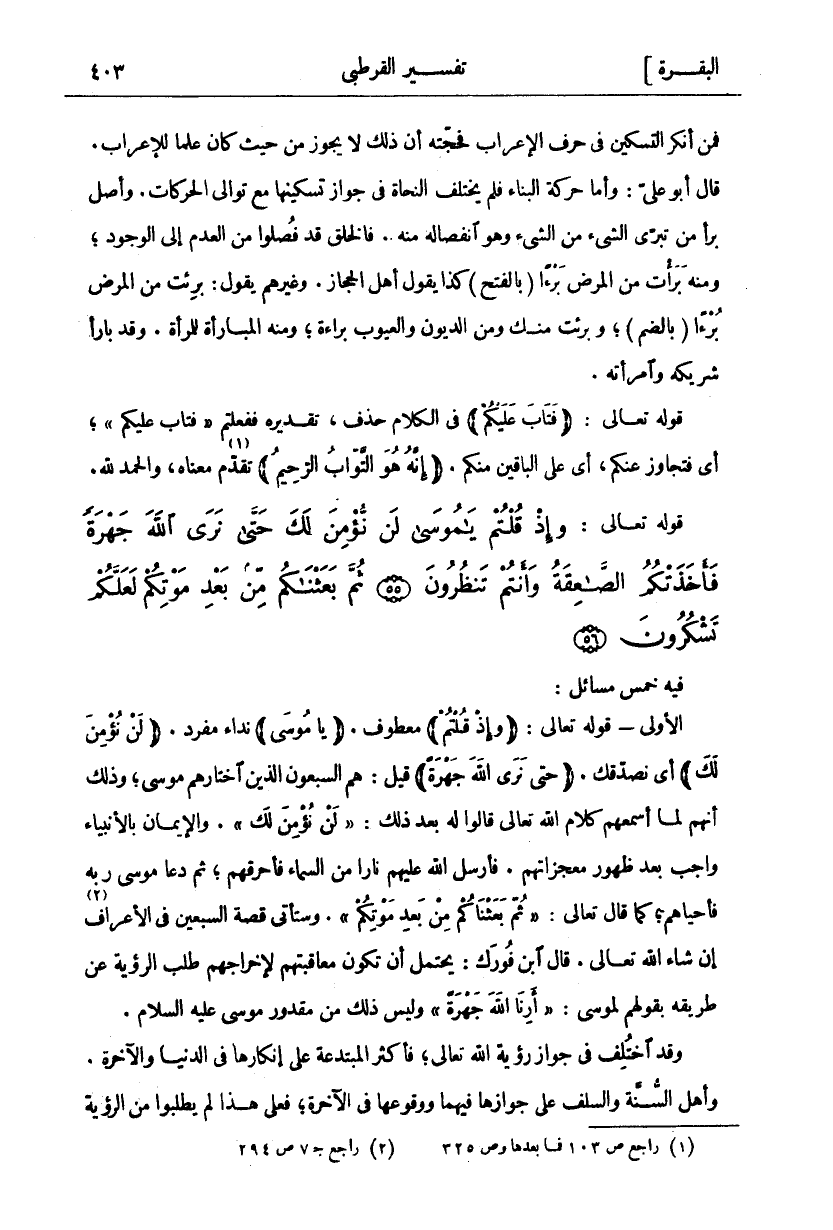 البقـــرة ] تفســـير القرطبى ٤٠٣
فمن أنكر التسكين فى حرف الإعراب فحجّته أن ذلك لا يجوز من حيث كان علما للإعراب .
قال أبو علىّ : وأما حركة البناء فلم يختلف النحاة فى جواز تسكينها مع توالى الحركات . وأصل
برأ من تبرّى الشىء من الشىء وهو آنفصاله منه . فالخلق قد فُصلوا من العدم إلى الوجود ؛
ومنه بَرَأْت من المرض بَرْءًا ( بالفتح ) كذا يقول أهل الحجاز . وغيرهم يقول : برِئت من المرض
بُرْءًا ( بالضم ) ؛ و برئت منـك ومن الديون والعيوب براءة ؛ ومنه المبـارأة للرأة . وقد بارأ
شريكه وآمرأته .
قوله تعـالى : ﴿ فَتَابَ عَلَيْكُمْ ﴾ فى الكلام حذف ، تقـديره ففعلتم « فتاب عليكم » ؛
أى فتجاوز عنكم ، أى على الباقين منكم . ﴿ إِنَّهُ هُوَ التَّوَّابُ الرَّحِيمُ ﴾ تقدّم(١) معناه ، والحمد لله .
قوله تعـالى : وَإِذْ قُلْتُمْ يَـٰمُوسَىٰ لَن نُّؤْمِنَ لَكَ حَتَّىٰ نَرَى ٱللَّهَ جَهْرَةً
فَأَخَذَتْكُمُ الصَّـٰعِقَةُ وَأَنتُمْ تَنظُرُونَ ۝٥٥ ثُمَّ بَعَثْنَـٰكُم مِّنۢ بَعْدِ مَوْتِكُمْ لَعَلَّكُمْ
تَشْكُرُونَ ۝٥٦
فيه خمس مسائل :
الأولى – قوله تعالى : ﴿ وَإِذْ قُلْتُمْ ﴾ معطوف . ﴿ يا مُوسَى ﴾ نداء مفرد . ﴿ لَنْ نُؤْمِنَ
لَكَ ﴾ أى نصدّقك . ﴿ حتى نَرَى اللهَ جَهْرَةً ﴾ قيل : هم السبعون الذين آختارهم موسى ؛ وذلك
أنهم لمـا أسمعهم كلام الله تعالى قالوا له بعد ذلك : « لَنْ نُؤْمِنَ لَكَ » . والإيمـان بالأنبياء
واجب بعد ظهور معجزاتهم . فأرسل الله عليهم نارا من السماء فأحرقهم ؛ ثم دعا موسى ربه
فأحياهم ؛ كما قال تعالى : « ثُمَّ بَعَثْنَاكُمْ مِنْ بَعدِ مَوْتِكُمْ » . وستأتى قصة السبعين فى الأعراف(٢)
إن شاء الله تعـالى . قال آبن فُورَك : يحتمل أن تكون معاقبتهم لإخراجهم طلب الرؤية عن
طريقه بقولهم لموسى : « أَرِنَا اللهَ جَهْرَةً » وليس ذلك من مقدور موسى عليه السلام .
وقد آختُلِف فى جواز رؤية الله تعالى ؛ فأكثر المبتدعة على إنكارها فى الدنيـا والآخرة .
وأهل السُّنَّة والسلف على جوازها فيهما ووقوعها فى الآخرة ؛ فعلى هـذا لم يطلبوا من الرؤية
(١) راجع ص ١٠٣ فـا بعدها وص ٣٢٥ (٢) راجع جـ ٧ ص ٢٩٤